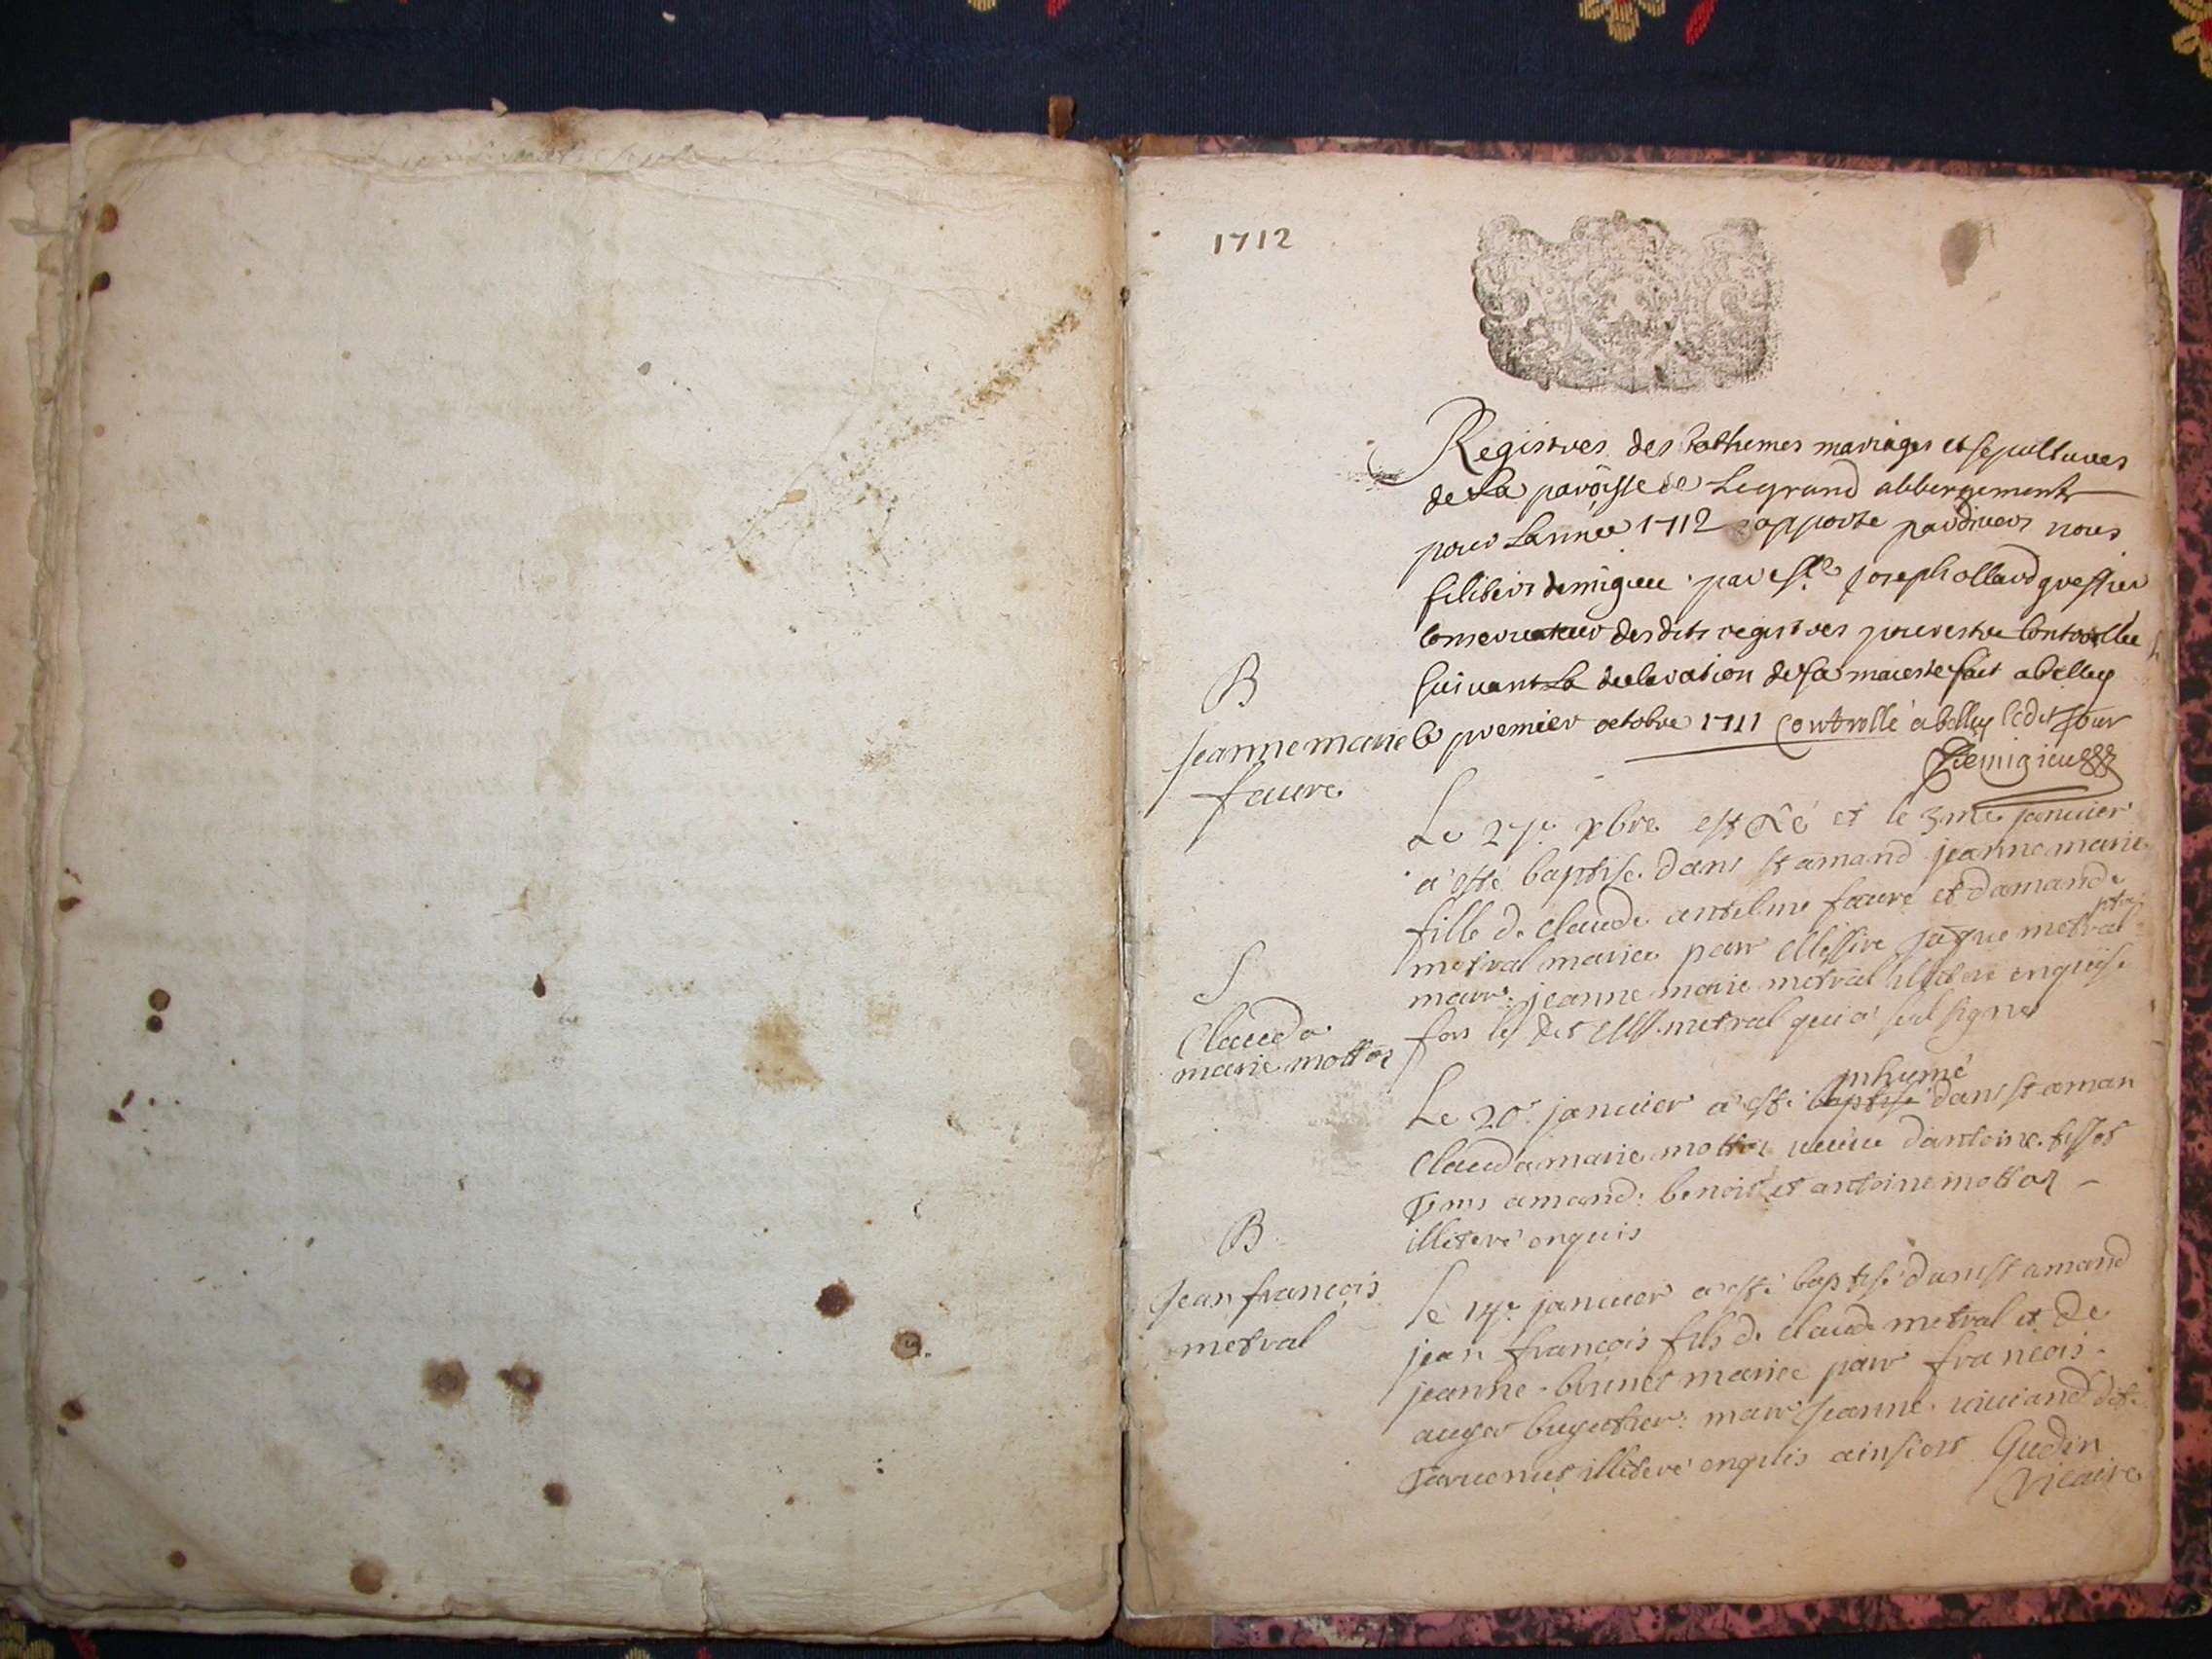 1712
Registres des bathemes mariages et sepultures
de La paroisse de Legrand abbergement
pour Lannee 1712 apporte pardevers nous
filibert demigieu par Joseph ollard greffier
Conservateur desdits registres pour estre Controllee
suivant La declaration de sa maieste fait a belley
le premier octobre 1711 Controllé a belley ledit Jour
Demigieu
B
jeanne marie
faure
Le 27e xbre est né et le 3me janvier
a esté baptise dans st amand jeanne marie
fille de claude antelme faure et damande
metral mariee parr Messire Jaque metral ptre
marr. jeanne marie metral illitere enquise
fors le dit Mess. metral qui a seul signe
S
Clauda
marie mottaz
Le 20e janvier a esté baptisé inhumé dans st aman
Clauda marie mottaz veuve dantoine tissot
pns amand benoist et antoine mottaz
illiteré enquis
B
jean françois
metral
le 14e janvier a esté baptisé dans st amand
jean françois fils de claude metral et de
jeanne brunet mariee parr françois
auger marr jeanne viviand dit
illiteré enquis ainsi est Gudin
vicaire